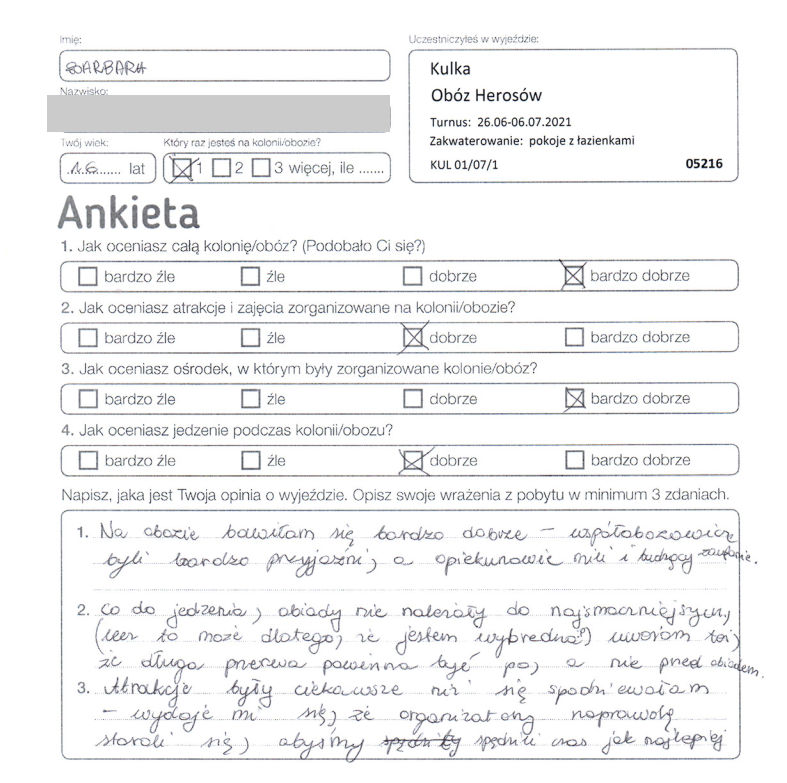 Imię:
BARBARA
Nazwisko:
Twój wiek:
16 lat
Który raz jesteś na kolonii/obozie?
1 2 3 więcej, ile .......
Uczestniczyłeś w wyjeździe:
Kulka
Obóz Herosów
Turnus: 26.06-06.07.2021
Zakwaterowanie: pokoje z łazienkami
KUL 01/07/1 05216
Ankieta
1. Jak oceniasz całą kolonię/obóz? (Podobało Ci się?)
bardzo źle źle dobrze bardzo dobrze
2. Jak oceniasz atrakcje i zajęcia zorganizowane na kolonii/obozie?
bardzo źle źle dobrze bardzo dobrze
3. Jak oceniasz ośrodek, w którym były zorganizowane kolonie/obóz?
bardzo źle źle dobrze bardzo dobrze
4. Jak oceniasz jedzenie podczas kolonii/obozu?
bardzo źle źle dobrze bardzo dobrze
Napisz, jaka jest Twoja opinia o wyjeździe. Opisz swoje wrażenia z pobytu w minimum 3 zdaniach.
1. Na obozie bawiłam się bardzo dobrze – współobozowicze
byli bardzo przyjaźni, a opiekunowie mili i budzący zaufanie.
2. Co do jedzenia, obiady nie należały do najsmaczniejszych,
(lecz to może dlatego, że jestem wybredna?) uważam też,
że długa przerwa powinna być po, a nie przed obiadem.
3. Atrakcje były ciekawsze niż się spodziewałam
– wydaje mi się, że organizatorzy naprawdę
starali się, abyśmy spędzili czas jak najlepiej